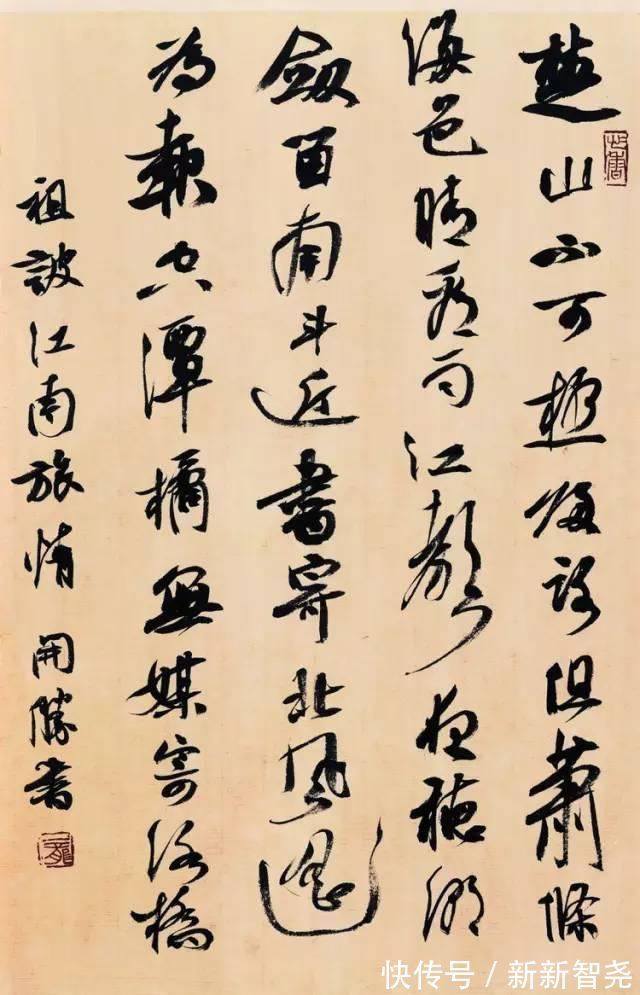 楚山不可極歸路但蕭條
海色晴看雨江聲夜聽潮
劔留南斗近書寄北風遥
為報空潭橘無媒寄洛橋
祖詠江南旅情 開勝書
快传号 / 新新智尧